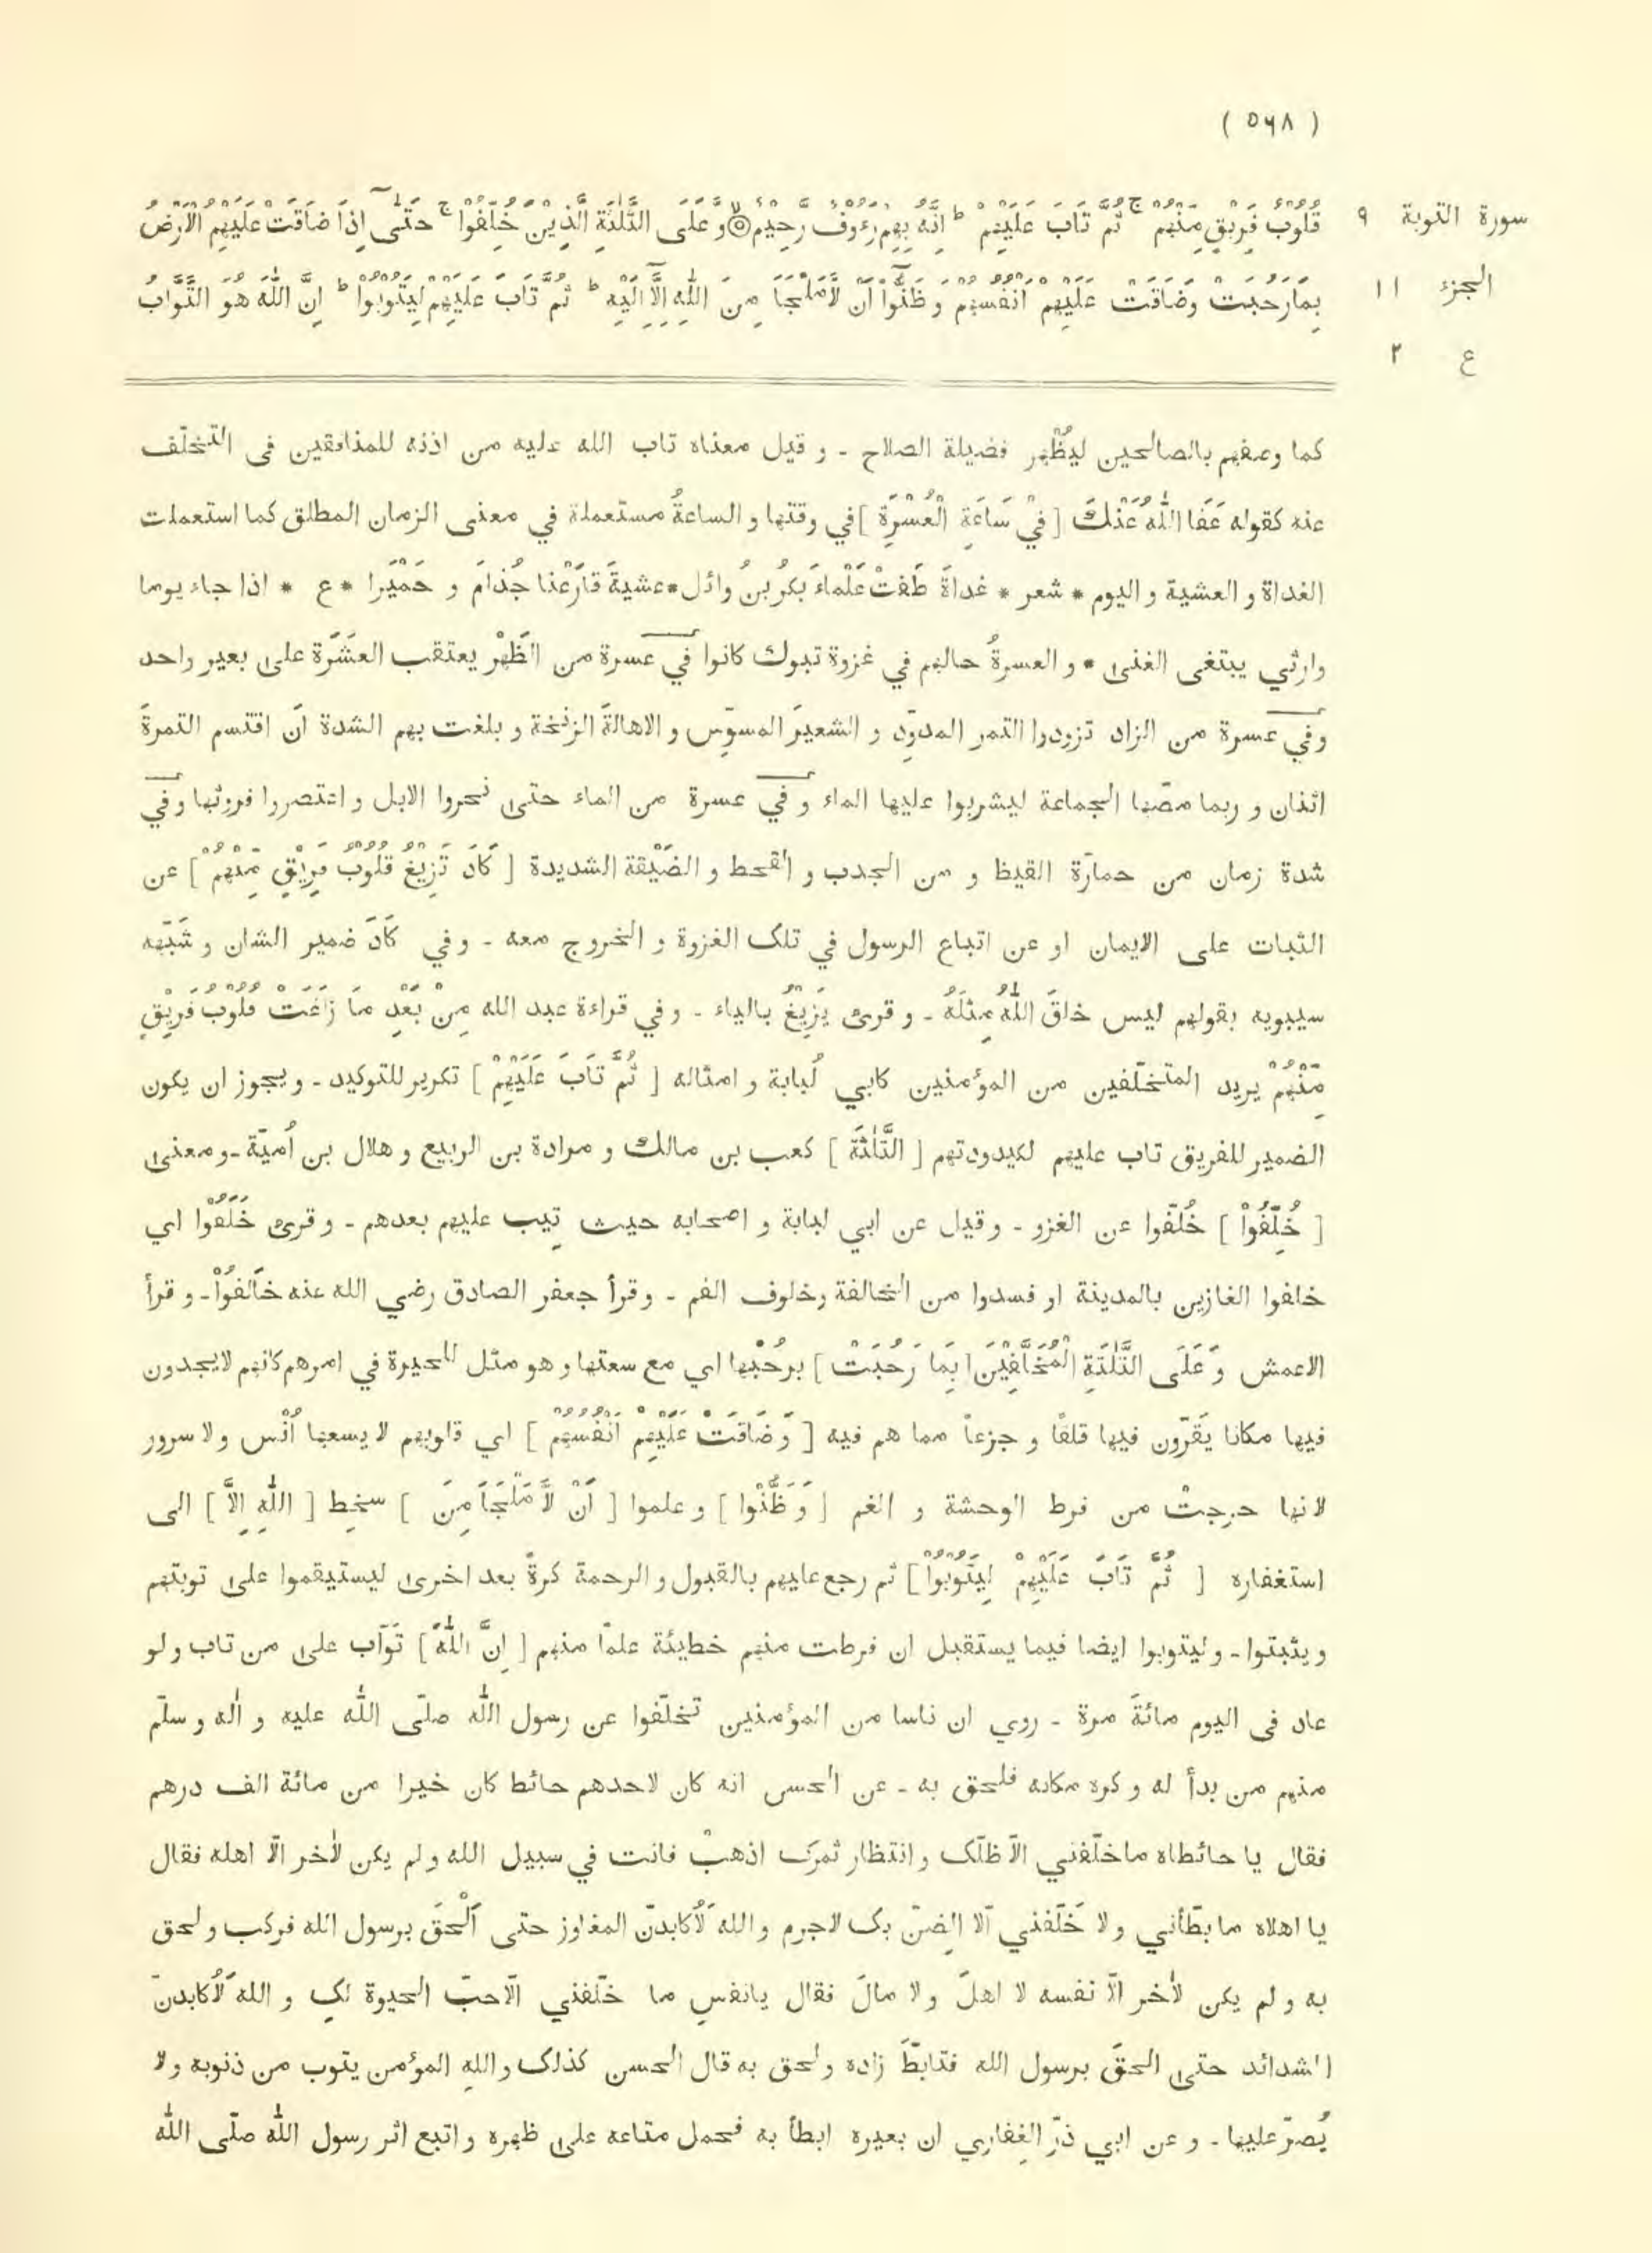 ( ٥٦٨ )
سورة التوبة ٩
الجزء ١١
ع ٢
قُلُوْبُ فَرِيْقٍ مِّنْهُمْ ج ثُمَّ تَابَ عَلَيْهِمْ ط اِنَّهُ بِهِمْ رَءُوْفٌ رَّحِيْمٌ ۝ لا وَّ عَلَى الثَّلٰثَةِ الَّذِيْنَ خُلِّفُوْا ج حَتّٰٓى اِذَا ضَاقَتْ عَلَيْهِمُ الْاَرْضُ
بِمَا رَحُبَتْ وَضَاقَتْ عَلَيْهِمْ اَنْفُسُهُمْ وَ ظَنُّوْٓا اَنْ لَّا مَلْجَاَ مِنَ اللّٰهِ اِلَّآ اِلَيْهِ ط ثُمَّ تَابَ عَلَيْهِمْ لِيَتُوْبُوْا ط اِنَّ اللّٰهَ هُوَ التَّوَّابُ
كما وصفهم بالصالحين ليُظْهر فضيلة الصلاح - و قيل معناه تاب الله عليه من اذنه للمنافقين فى التخلّف
عنه كقوله عَفَا اللّٰهُ عَنْكَ [ فِيْ سَاعَةِ الْعُسْرَةِ ] في وقتها و الساعةُ مستعملة في معنى الزمان المطلق كما استعملت
الغداة و العشية و اليوم * شعر * غداةَ طَفتْ عَلْماءِ بكرُ بنُ وائل * عشيةَ قارَعْنا جُذامَ و حَمْيَرا * ع * اذا جاء يوما
وارثي يبتغى الغنى * و العسرةُ حالهم في غزوة تبوك كانوا في عسرة من الظَهْر يعتقب العشَرة على بعير واحد
وفي عسرة من الزاد تزودوا التمر المدوّد و الشعيرَ المسوّس و الاهالةَ الزنخة و بلغت بهم الشدة أن اقتسم التمرةَ
اثنان و ربما مصّها الجماعة ليشربوا عليها الماء و في عسرة من الماء حتى نحروا الابل و اعتصروا فروثها وفي
شدة زمان من حمارّة القيظ و من الجدب و القحط و الضَيْقة الشديدة [ كَادَ تَزِيْغُ قُلُوْبُ فَرِيْقٍ مِّنْهُمْ ] عن
الثبات على الايمان او عن اتباع الرسول في تلك الغزوة و الخروج معه - وفي كَادَ ضمير الشان و شَبّهه
سيبويه بقولهم ليس خلقَ اللّٰهُ مِثلَهُ - و قرئ يَزِيْغُ بالياء - و في قراءة عبد الله مِنْ بَعْدِ مَا زَاغَتْ قُلُوْبُ فَرِيْقٍ
مِّنْهُمْ يريد المتخلّفين من المؤمنين كابي لُبابة و امثاله [ ثُمَّ تَابَ عَلَيْهِمْ ] تكرير للتوكيد - و يجوز ان يكون
الضمير للفريق تاب عليهم لكيدودتهم [ الثَّلٰثَةِ ] كعب بن مالك و مرادة بن الربيع و هلال بن اُميّة - و معنى
[ خُلِّفُوْا ] خُلّفوا عن الغزو - و قيل عن ابي لبابة و اصحابه حيث تِيب عليهم بعدهم - و قرئ خَلَفُوْا اي
خلفوا الغازين بالمدينة او فسدوا من الخالفة وخلوف الفم - وقرأ جعفر الصادق رضي الله عنه خَالَفُوْا - و قرأ
الاعمش وَ عَلَى الثَّلٰثَةِ الْمُخَلَّفِيْنَ [ بِمَا رَحُبَتْ ] برحُبْها اي مع سعتها و هو مثل للحيرة في امرهم كانهم لا يجدون
فيها مكانا يَقرّون فيها قلقًا و جزعاً مما هم فيه [ وَ ضَاقَتْ عَلَيْهِمْ اَنْفُسُهُمْ ] اي قلوبهم لا يسعها اُنس ولا سرور
لانها حرجتْ من فرط الوحشة و الغم [ وَ ظَنُّوْا ] و علموا [ اَنْ لَّا مَلْجَاَ مِنَ ] سخِط [ اللّٰهِ اِلَّا ] الى
استغفاره [ ثُمَّ تَابَ عَلَيْهِمْ لِيَتُوْبُوْا ] ثم رجع عليهم بالقبول و الرحمة كرةً بعد اخرى ليستيقموا على توبتهم
و يثبتوا - و ليتوبوا ايضا فيما يستقبل ان فرطت منهم خطيئة علمًا منهم [ اِنَّ اللّٰهَ ] تَوّاب على من تاب ولو
عاد فى اليوم مائةَ مرة - روي ان ناسا من المؤمنين تخلّفوا عن رسول اللّٰه صلّى اللّٰه عليه و اٰله و سلّم
منهم من بدأ له و كره مكانه فلحق به - عن الحسن انه كان لاحدهم حائط كان خيرا من مائة الف درهم
فقال يا حائطاه ما خلّفني الّا ظلّك و انتظار ثمرك اذهبْ فانت في سبيل الله و لم يكن لاٰخر الّا اهله فقال
يا اهلاه ما بطّأني ولا خَلّفني اَلا الضِنّ بك لاجرم والله لَاُكابدنّ المفاوز حتى اَلْحقَ برسول الله فركب و لحق
به و لم يكن لاٰخر الّا نفسه لا اهلَ ولا مالَ فقال يانفسِ ما خلّفني الّا حبّ الحيوة لكِ و الله لَاُكابدنّ
الشدائد حتى الحقَ برسول الله فتابطّ زاده و لحق به قال الحسن كذلك و اللهِ المؤمن يتوب من ذنوبه ولا
يُصرّ عليها - و عن ابي ذرّ الغِفاري ان بعيره ابطأ به فحمل متاعه على ظهره و اتبع اثر رسول اللّٰه صلّى اللّٰه